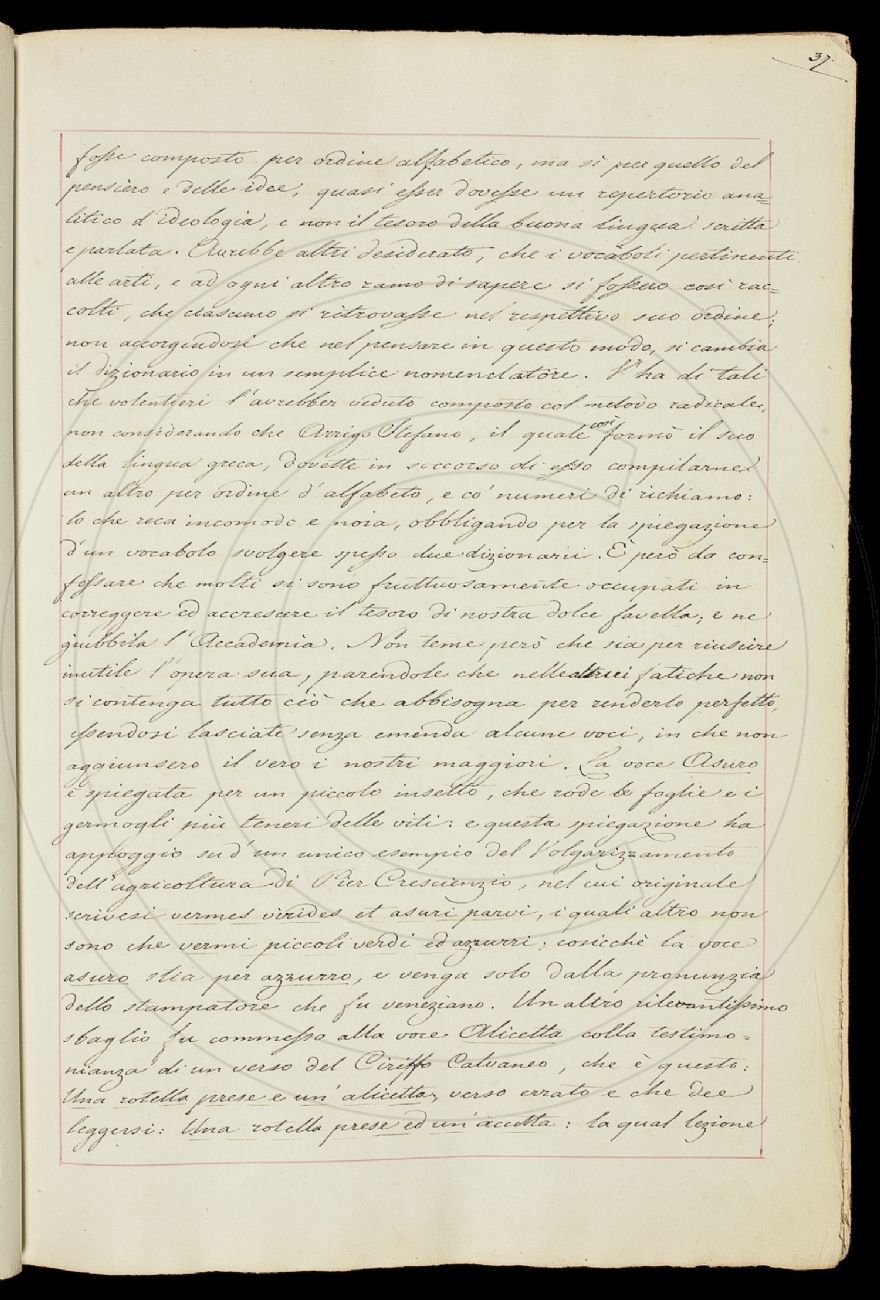 37
fosse composto per ordine alfabetico, ma sì per quello del
pensiero e delle idee, quasi esser dovesse un repertorio ana=
litico d'ideologia, e non il tesoro della buona lingua scritta
e parlata. Avrebbe altri desiderato, che i vocaboli pertinenti
alle arti, e ad ogni altro ramo di sapere si fossero così rac=
colti, che ciascuno si ritrovasse nel respettivo suo ordine;
non accorgendosi che nel pensare in questo modo, si cambia
il dizionario in un semplice nomenclatore. V'ha di tali
che volentieri l'avrebber veduto composto col metodo radicale,
non considerando che Arrigo Stefano, il quale così formò il suo
della lingua greca, dovette in soccorso di esso compilarne
un altro per ordine d'alfabeto, e co' numeri di richiamo:
lo che reca incomodo e noia, obbligando per la spiegazione
d'un vocabolo svolgere spesso due dizionarii. È però da con=
fessare che molti si sono fruttuosamente occupati in
correggere ed accrescere il tesoro di nostra dolce favella; e ne
giubbila l'Accademia. Non teme però che sia per riuscire
inutile l'opera sua, parendole che nelle altrui fatiche non
si contenga tutto ciò che abbisogna per renderlo perfetto,
essendosi lasciate senza emenda alcune voci, in che non
aggiunsero il vero i nostri maggiori. La voce Asuro
è spiegata per un piccolo insetto, che rode le foglie e i
germogli più teneri delle viti: e questa spiegazione ha
appoggio su d'un unico esempio del Volgarizzamento
dell'agricoltura di Pier Crescienzio, nel cui originale
scrivesi vermes virides et asuri parvi, i quali altro non
sono che vermi piccoli verdi ed azzurri; cosicchè la voce
asuro stia per azzurro, e venga solo dalla pronunzia
dello stampatore che fu veneziano. Un altro rilevantissimo
sbaglio fu commesso alla voce Alicetta colla testimo=
nianza di un verso del Ciriffo Calvaneo, che è questo:
Una rotella prese e un'alicetta, verso errato e che dee
leggersi: Una rotella prese ed un'accetta: la qual lezione